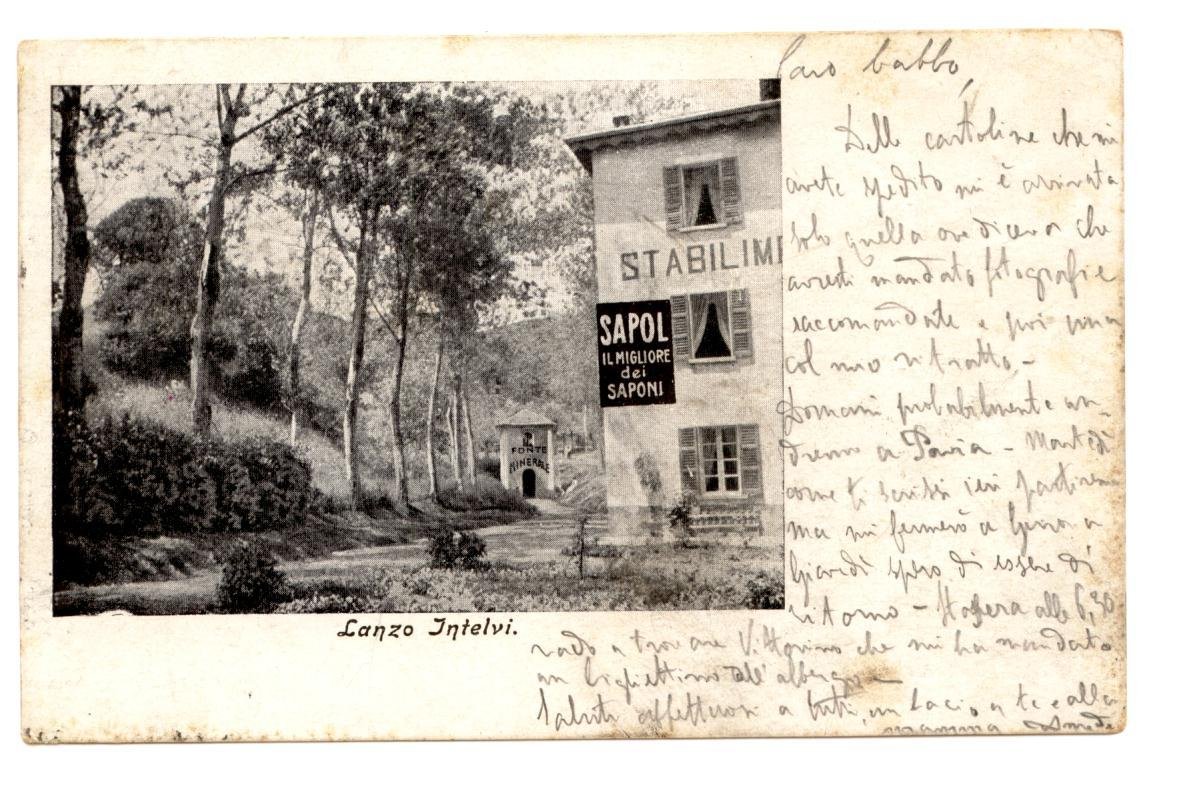 Caro babbo,
Delle cartoline che mi
avete spedito mi è arrivata
solo quella ove dicevi che
avresti mandato fotografie
raccomandate e poi una
col mio ritratto -
Domani probabilmente an-
dremo a Pavia - Martedì
come ti scrissi ieri partiremo
ma mi fermerò a Genova
Giovedì spero di essere di
ritorno - Stasera alle 6,30
vado a trovare Vittorino che mi ha mandato
un bigliettino all'albergo -
Saluti affettuosi a tutti, un bacio a te e alla
mamma
STABILIM
SAPOL
IL MIGLIORE
dei
SAPONI
FONTE
MINERALE
Lanzo Intelvi.